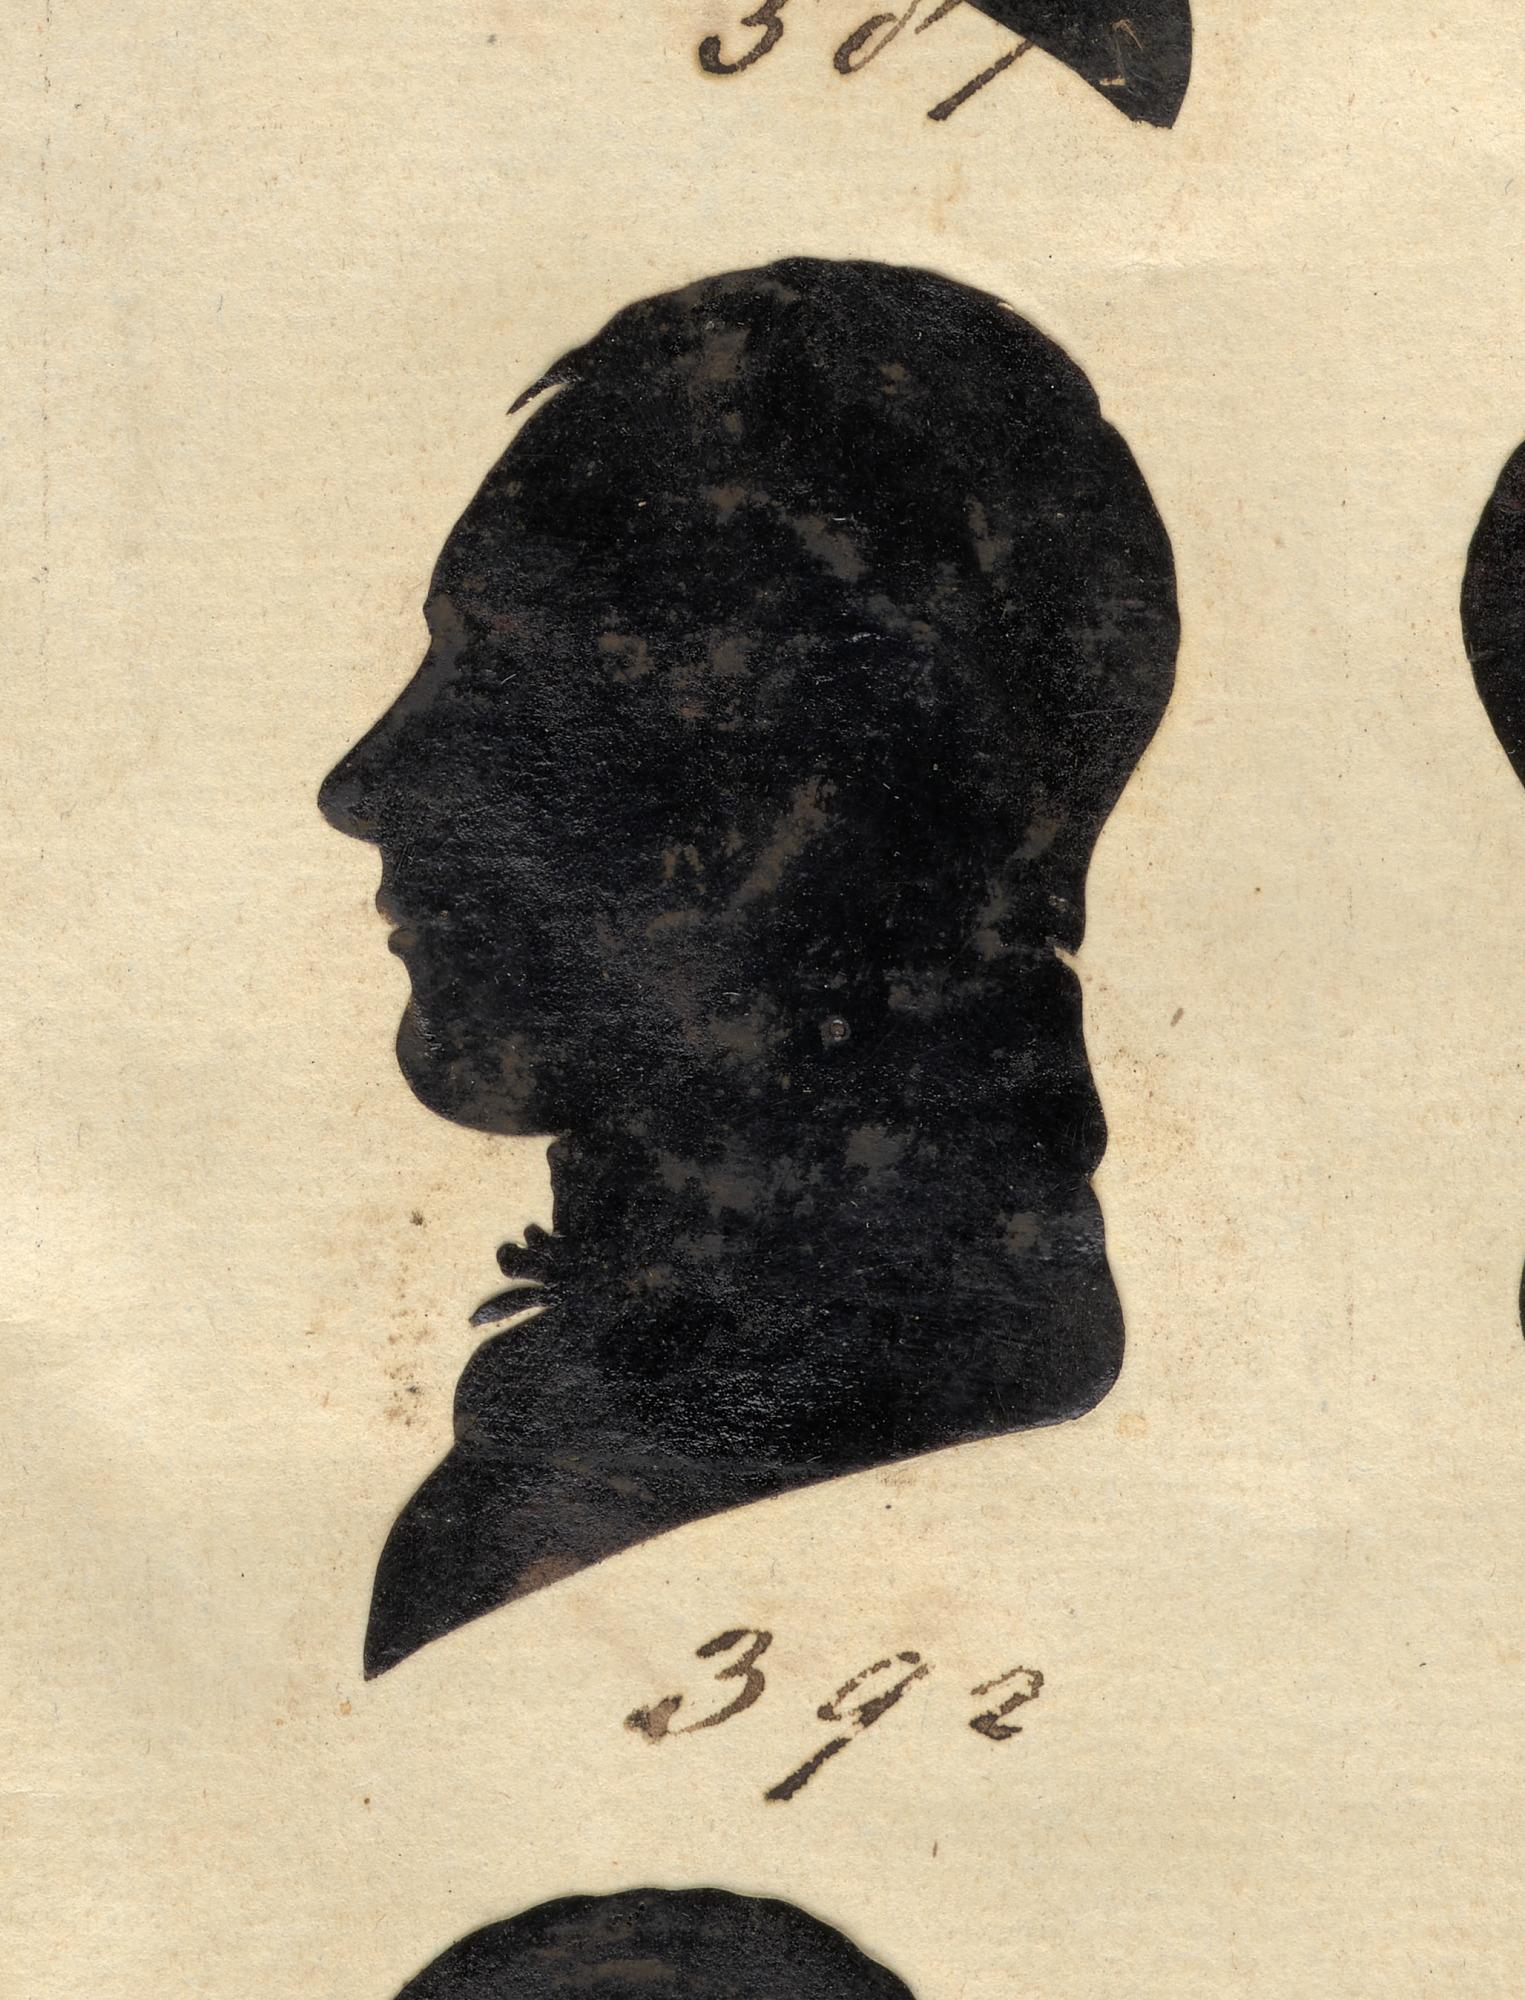 387
392